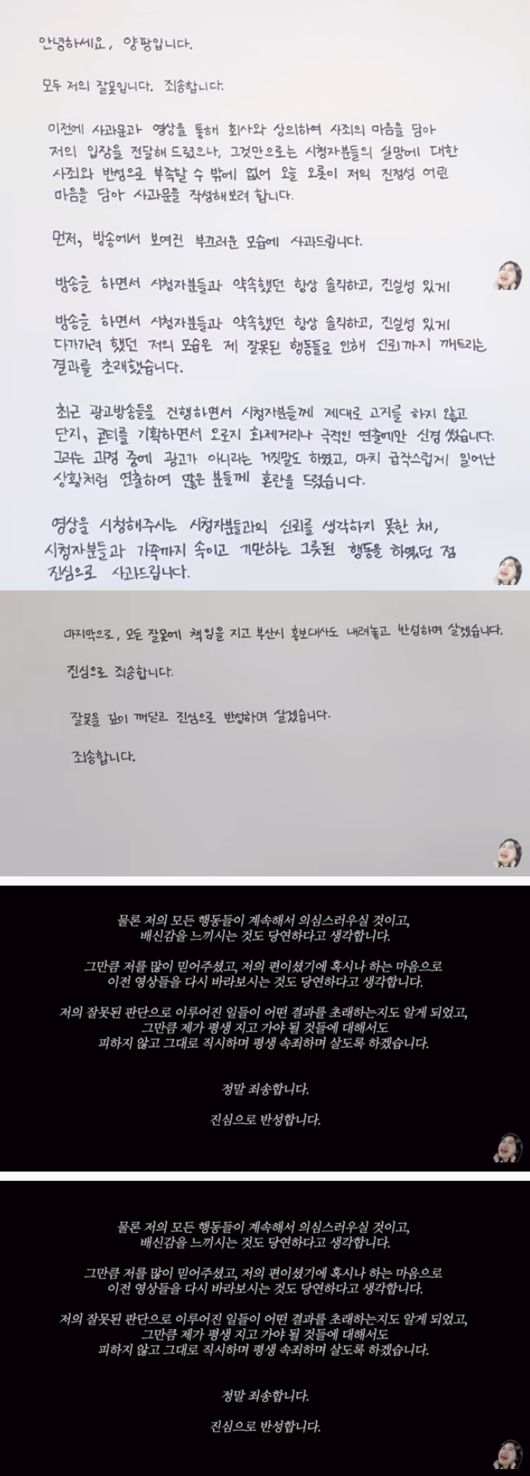 안녕하세요, 양팡입니다.
모두 저의 잘못입니다. 죄송합니다.
이전에 사과문과 영상을 통해 회사와 상의하여 사죄의 마음을 담아
저의 입장을 전달해 드렸으나, 그것만으로는 시청자분들의 실망에 대한
사죄와 반성으로 부족할 수 밖에 없어 오늘 오롯이 저의 진정성 어린
마음을 담아 사과문을 작성해보려 합니다.
먼저, 방송에서 보여진 부끄러운 모습에 사과드립니다.
방송을 하면서 시청자분들과 약속했던 항상 솔직하고, 진실성 있게
방송을 하면서 시청자분들과 약속했던 항상 솔직하고, 진실성 있게
다가가려 했던 저의 모습은 제 잘못된 행동들로 인해 신뢰까지 깨트리는
결과를 초래했습니다.
최근 광고방송들을 진행하면서 시청자분들께 제대로 고지를 하지 않고
단지, 콘티를 기획하면서 오로지 화제거리나 극적인 연출에만 신경 썼습니다.
그러는 과정 중에 광고가 아니라는 거짓말도 하였고, 마치 급작스럽게 일어난
상황처럼 연출하여 많은 분들께 혼란을 드렸습니다.
영상을 시청해주시는 시청자분들과의 신뢰를 생각하지 못한 채,
시청자분들과 가족까지 속이고 기만하는 그릇된 행동을 하였던 점
진심으로 사과드립니다.
마지막으로, 모든 잘못에 책임을 지고 부산시 홍보대사도 내려놓고 반성하며 살겠습니다.
진심으로 죄송합니다.
잘못을 깊이 깨닫고 진심으로 반성하며 살겠습니다.
죄송합니다.
물론 저의 모든 행동들이 계속해서 의심스러우실 것이고,
배신감을 느끼시는 것도 당연하다고 생각합니다.
그만큼 저를 많이 믿어주셨고, 저의 편이셨기에 혹시나 하는 마음으로
이전 영상들을 다시 바라보시는 것도 당연하다고 생각합니다.
저의 잘못된 판단으로 이루어진 일들이 어떤 결과를 초래하는지도 알게 되었고,
그만큼 제가 평생 지고 가야 될 것들에 대해서도
피하지 않고 그대로 직시하며 평생 속죄하며 살도록 하겠습니다.
정말 죄송합니다.
진심으로 반성합니다.
물론 저의 모든 행동들이 계속해서 의심스러우실 것이고,
배신감을 느끼시는 것도 당연하다고 생각합니다.
그만큼 저를 많이 믿어주셨고, 저의 편이셨기에 혹시나 하는 마음으로
이전 영상들을 다시 바라보시는 것도 당연하다고 생각합니다.
저의 잘못된 판단으로 이루어진 일들이 어떤 결과를 초래하는지도 알게 되었고,
그만큼 제가 평생 지고 가야 될 것들에 대해서도
피하지 않고 그대로 직시하며 평생 속죄하며 살도록 하겠습니다.
정말 죄송합니다.
진심으로 반성합니다.